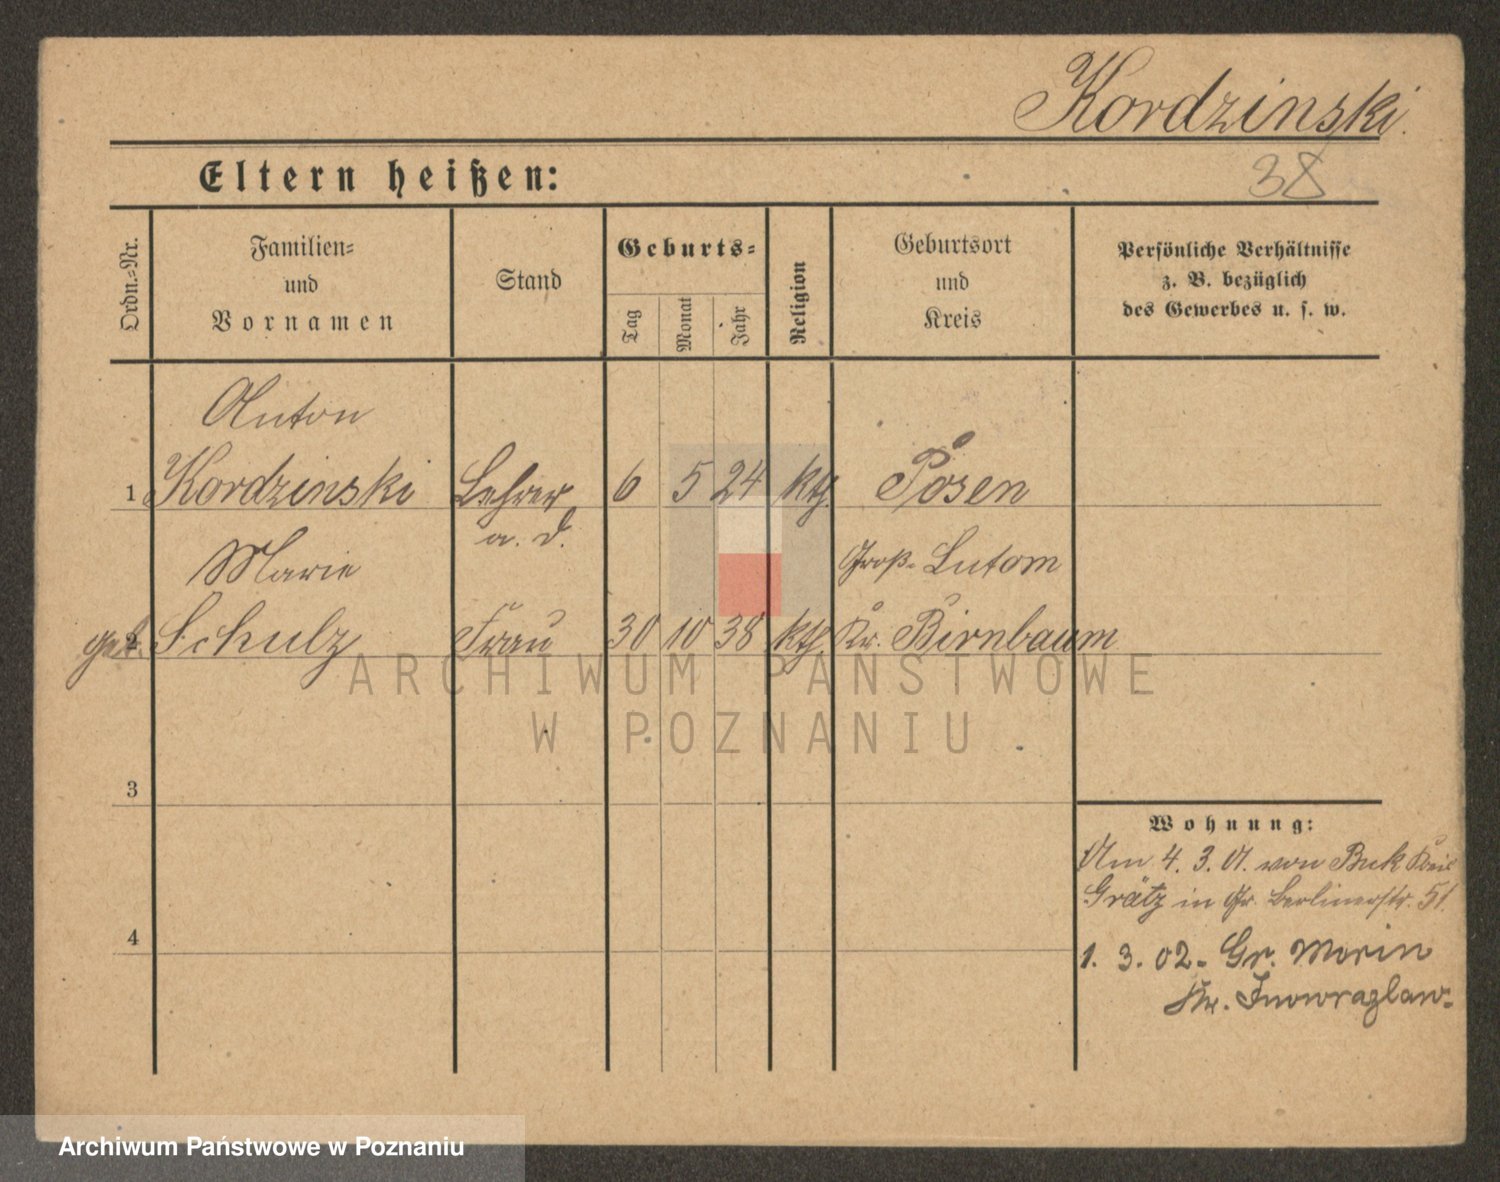 Kordzinski.
38
Eltern heißen:
Ordn.-Nr.
Familien-
und
Vornamen
Stand
Geburts-
Tag
Monat
Jahr
Religion
Geburtsort
und
Kreis
Persönliche Verhältnisse
z. B. bezüglich
des Gewerbes u. s. w.
Anton
1 Kordzinski Lehrer 6 5 24 kth. Posen
a. D.
Marie Groß-Lutom
geb. 2 Schulz Frau 30 10 38 kth. Kr. Birnbaum
ARCHIWUM PAŃSTWOWE
W POZNANIU
3
Wohnung:
Am 4. 3. 01. von Buk Kreis
Grätz in Gr. Berlinerstr. 51.
4
1. 3. 02. Gr. Morin
Kr. Inowrazlaw.
Archiwum Państwowe w Poznaniu